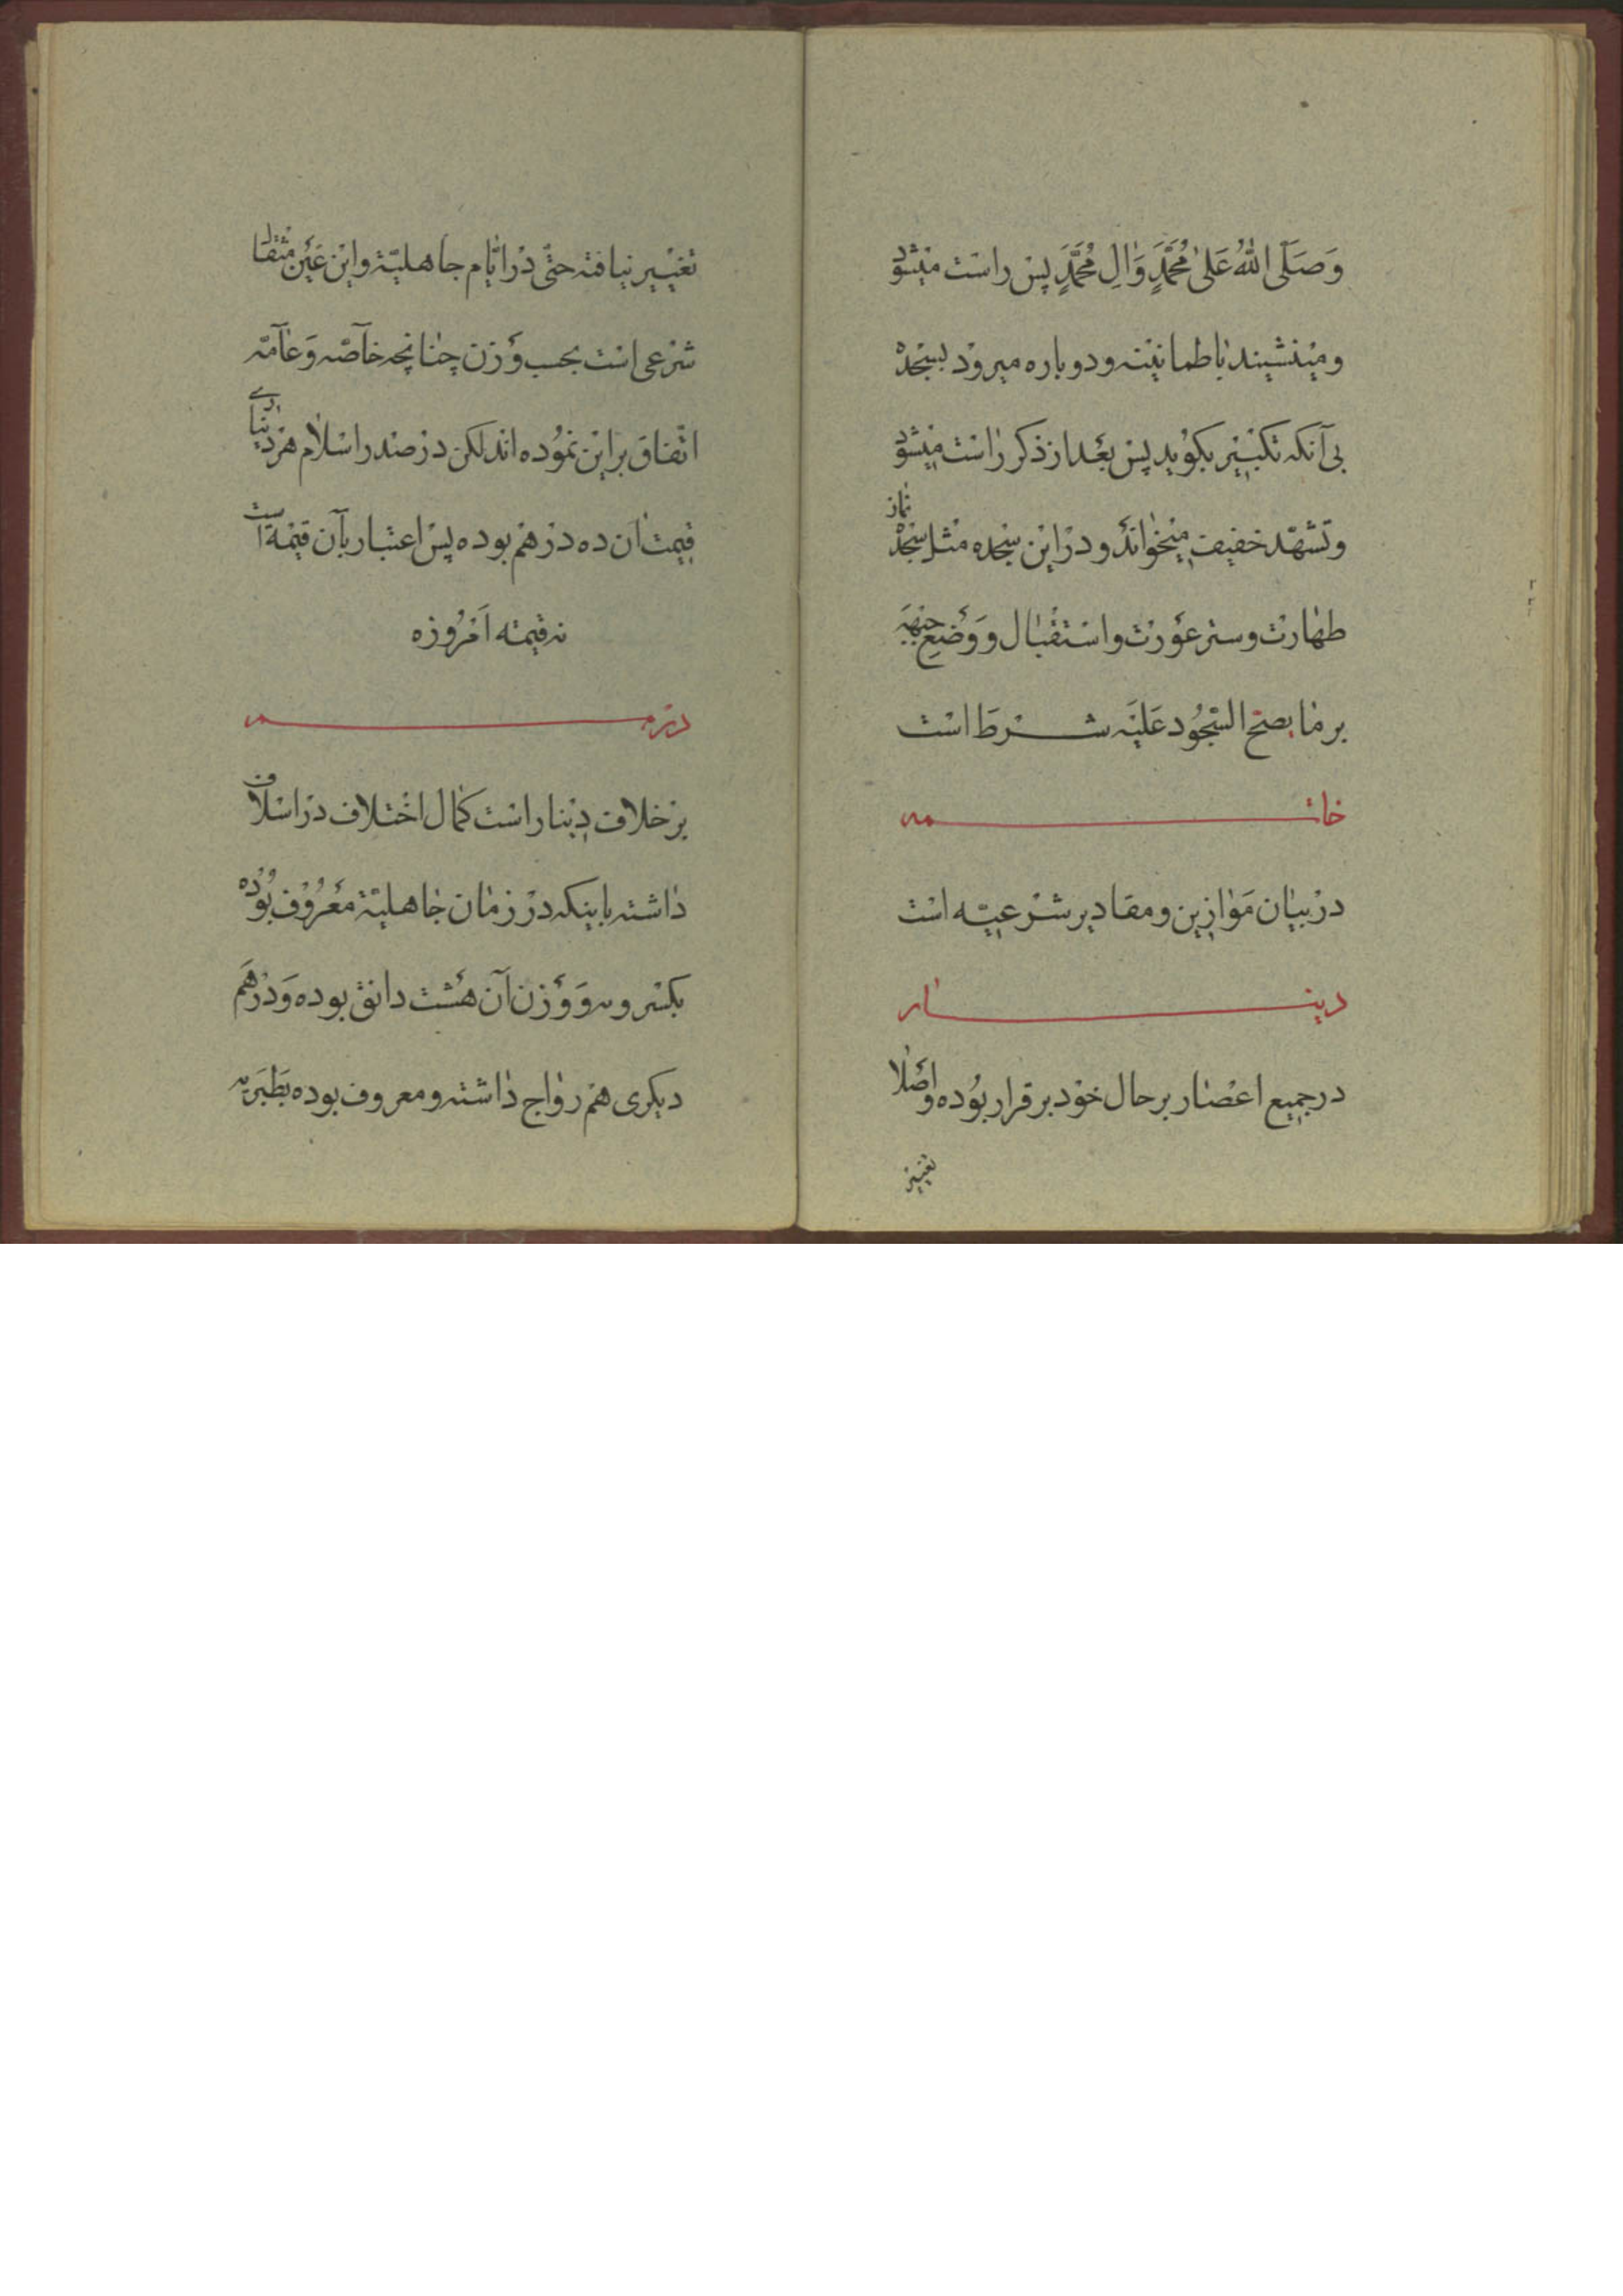 وَصَلَّی اللّٰهُ عَلیٰ مُحَمَّدٍ وَاٰلِ مُحَمَّدٍ پس راست میشود
و مینشیند باطمانینه و دوباره میرود بسجده
بی آنکه تکبیر بگوید پس بعد از ذکر راست میشود
و تشهّد خفیف میخواند و در این سجده مثل سجده نماز
طهارت و ستر عورت و استقبال و وضع جبهه
بر ما یصحّ السّجود علیه شرط است
خاتمه
در بیان موازین و مقادیر شرعیّه است
دینار
در جمیع اعصار بر حال خود برقرار بوده و اصلا
تغییر
تغییر نیافته حتّی در ایّام جاهلیّة و این عین مثقال
شرعی است بحسب وزن چنانچه خاصّه و عامّه
اتّفاق بر این نموده اند لکن در صدر اسلام هر دیناری
قیمت آن ده درهم بوده پس اعتبار بآن قیمة است
نه قیمته امروزه
درهم
بر خلاف دینار است کمال اختلاف در اسلاف
داشته باینکه در زمان جاهلیّة معروف بوده
بکسرویه و وزن آن هشت دانق بوده و درهم
دیکری هم رواج داشته و معروف بوده بطبریه